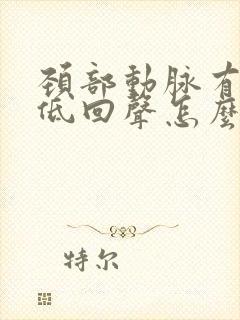 頚部動脉有
低回聲怎麼
特尔